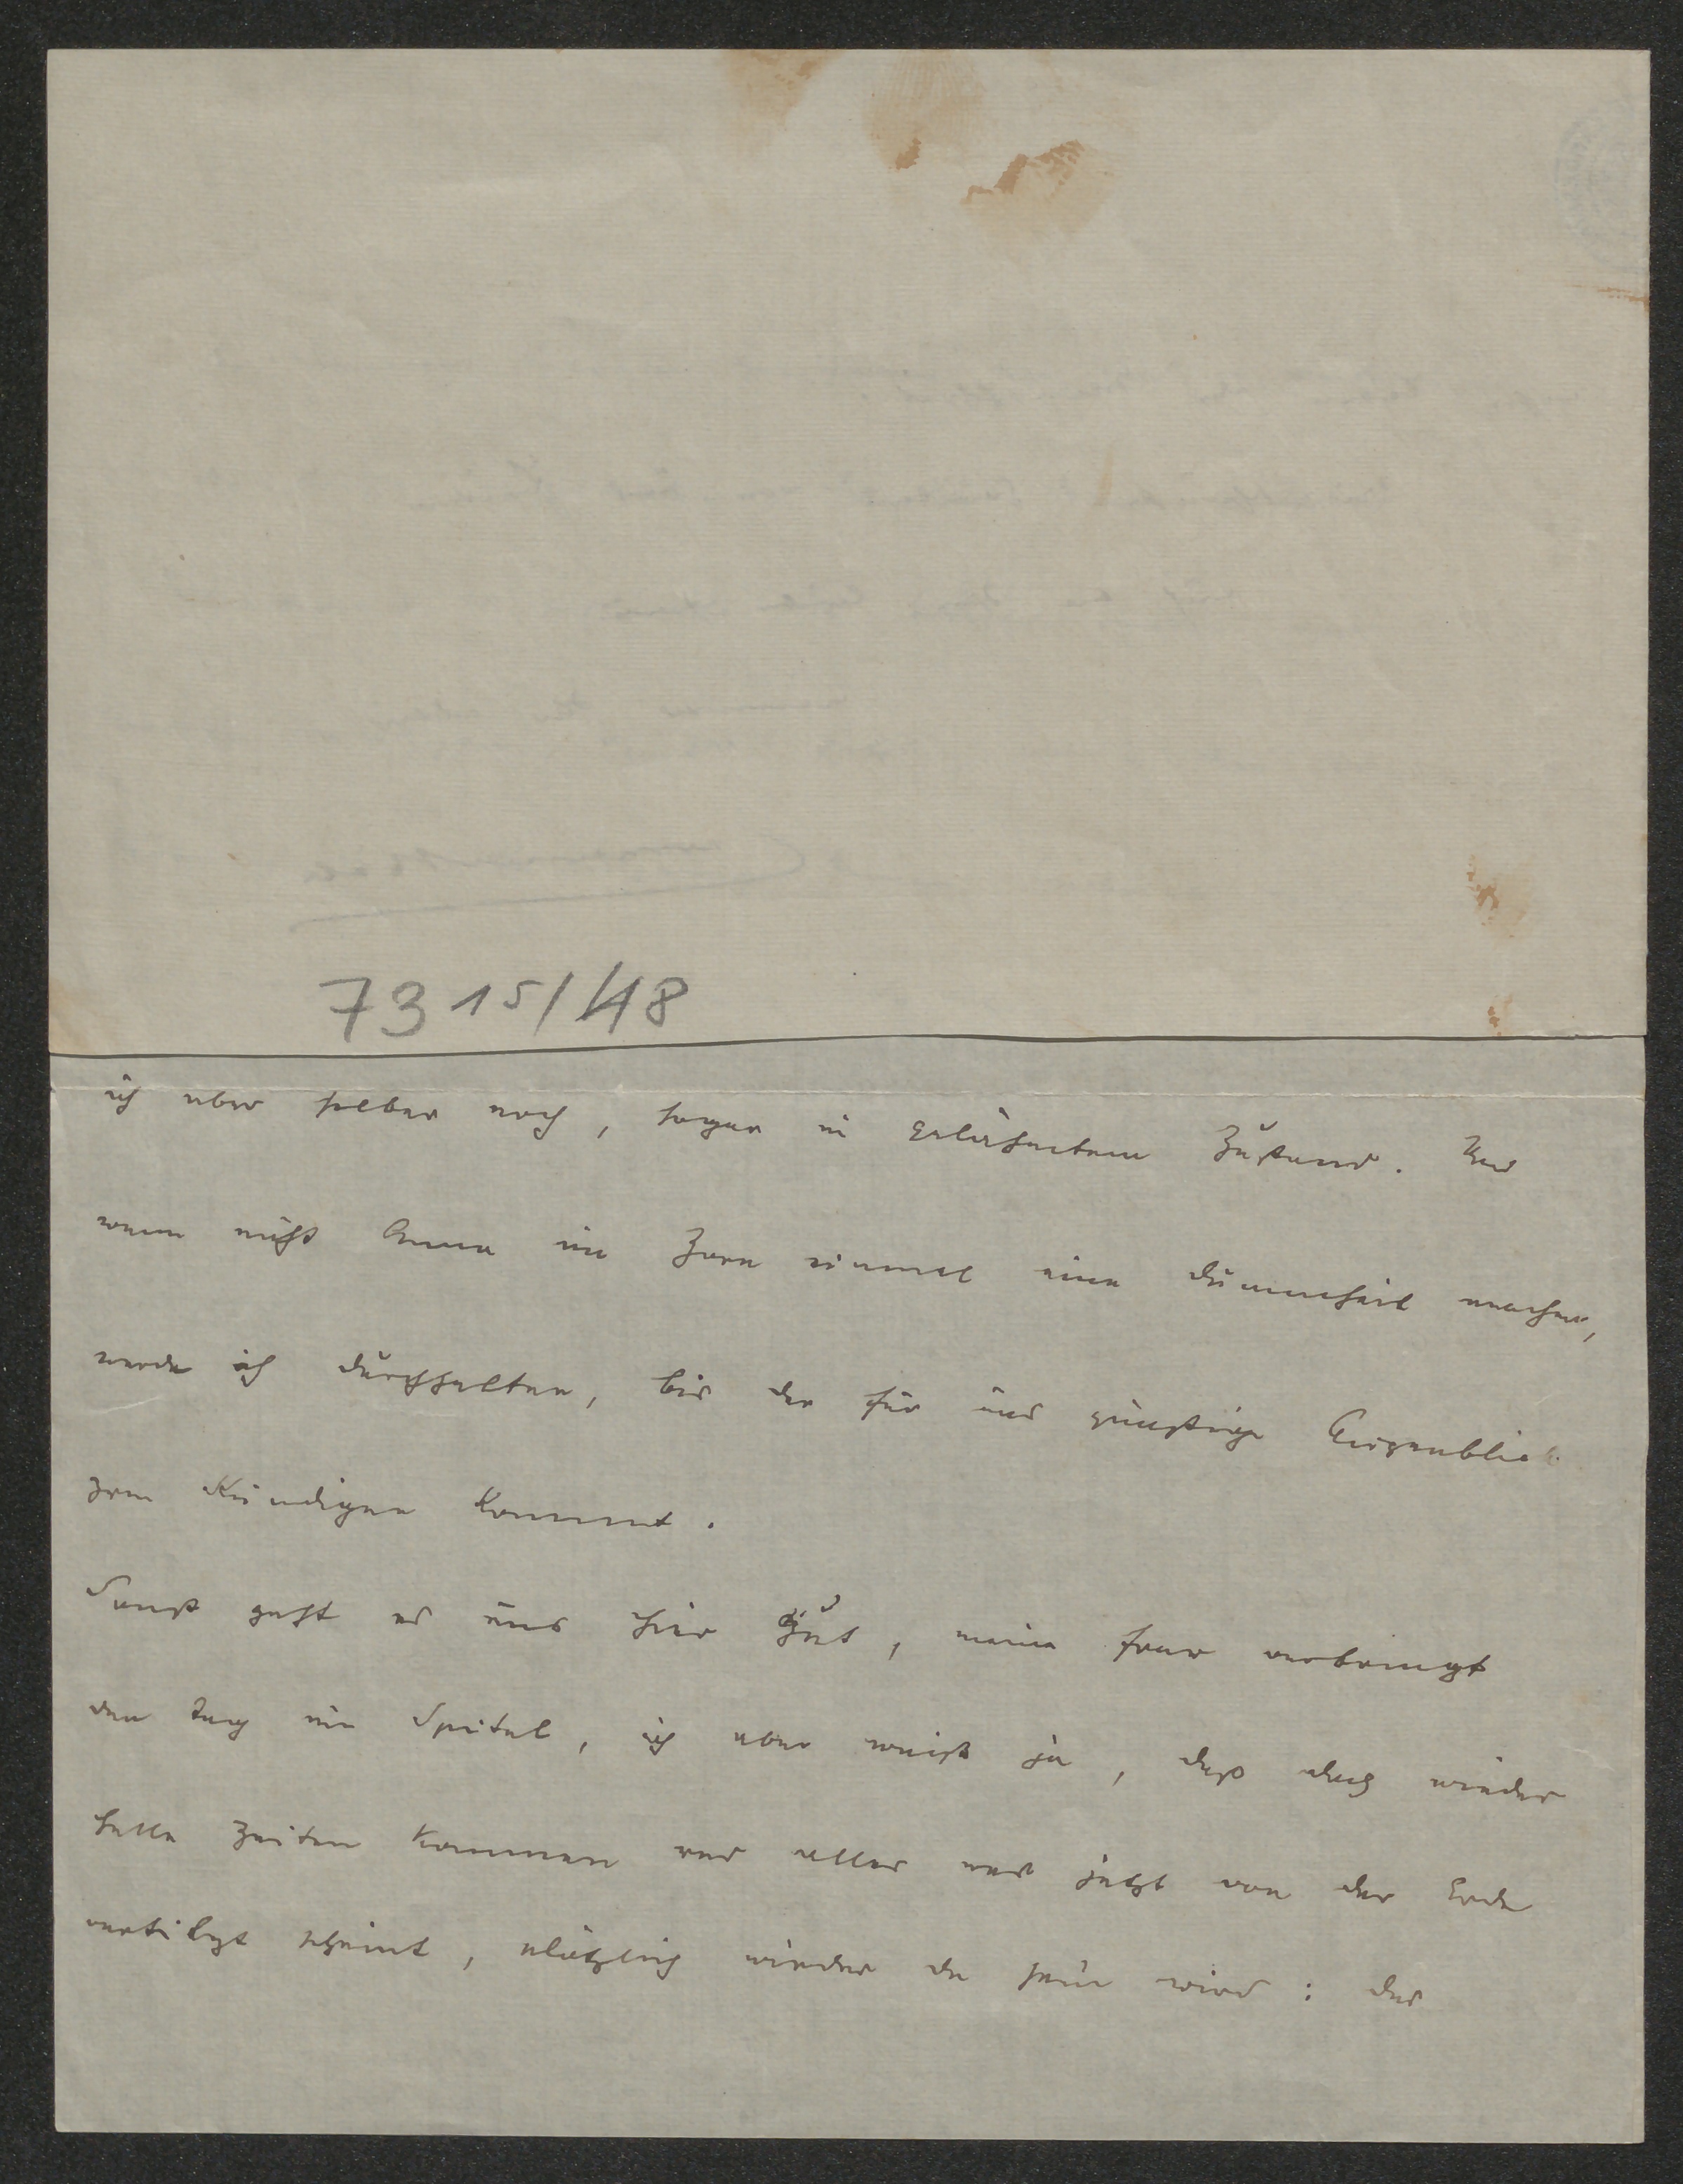 7315/48
ich aber selber noch, sogar in gelähmtem Zustand. Und
wenn nicht Anna im Zorn einmal eine Dummheit machen,
werde ich durchhalten, bis der für uns günstige Augenblick
zum Kündigen kommt.
Sonst geht es uns hier gut, meine Frau verbringt
den Tag im Spital, ich aber weiß ja, daß doch wieder
helle Zeiten kommen und alles was jetzt von der Erde
vertilgt scheint, plötzlich wieder da sein wird: das